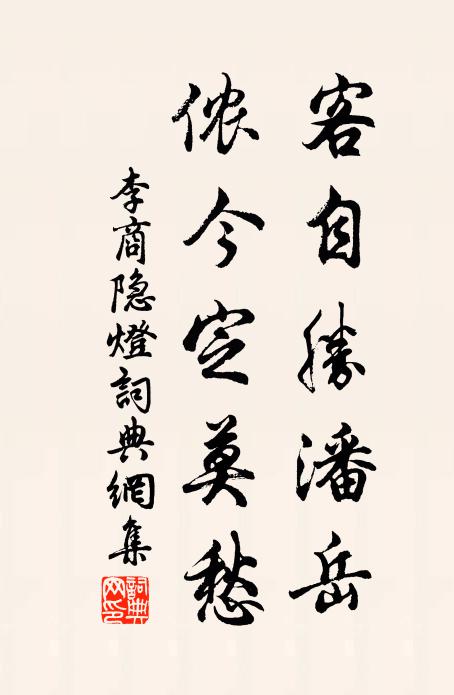 客自勝潘岳
侬今定莫愁
李商隐燈詞典網集
詞典网印